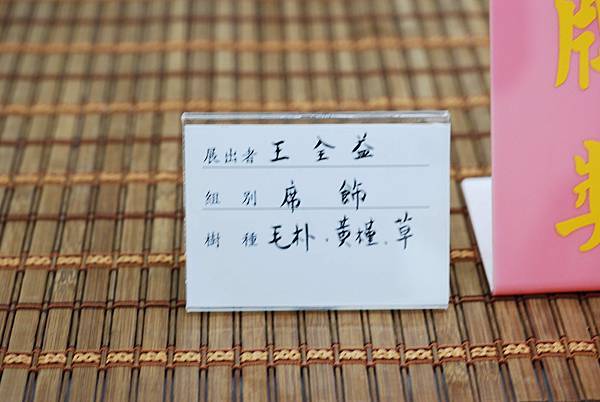 展出者 王全益
組別 席飾
樹種 毛朴、黃槿、草